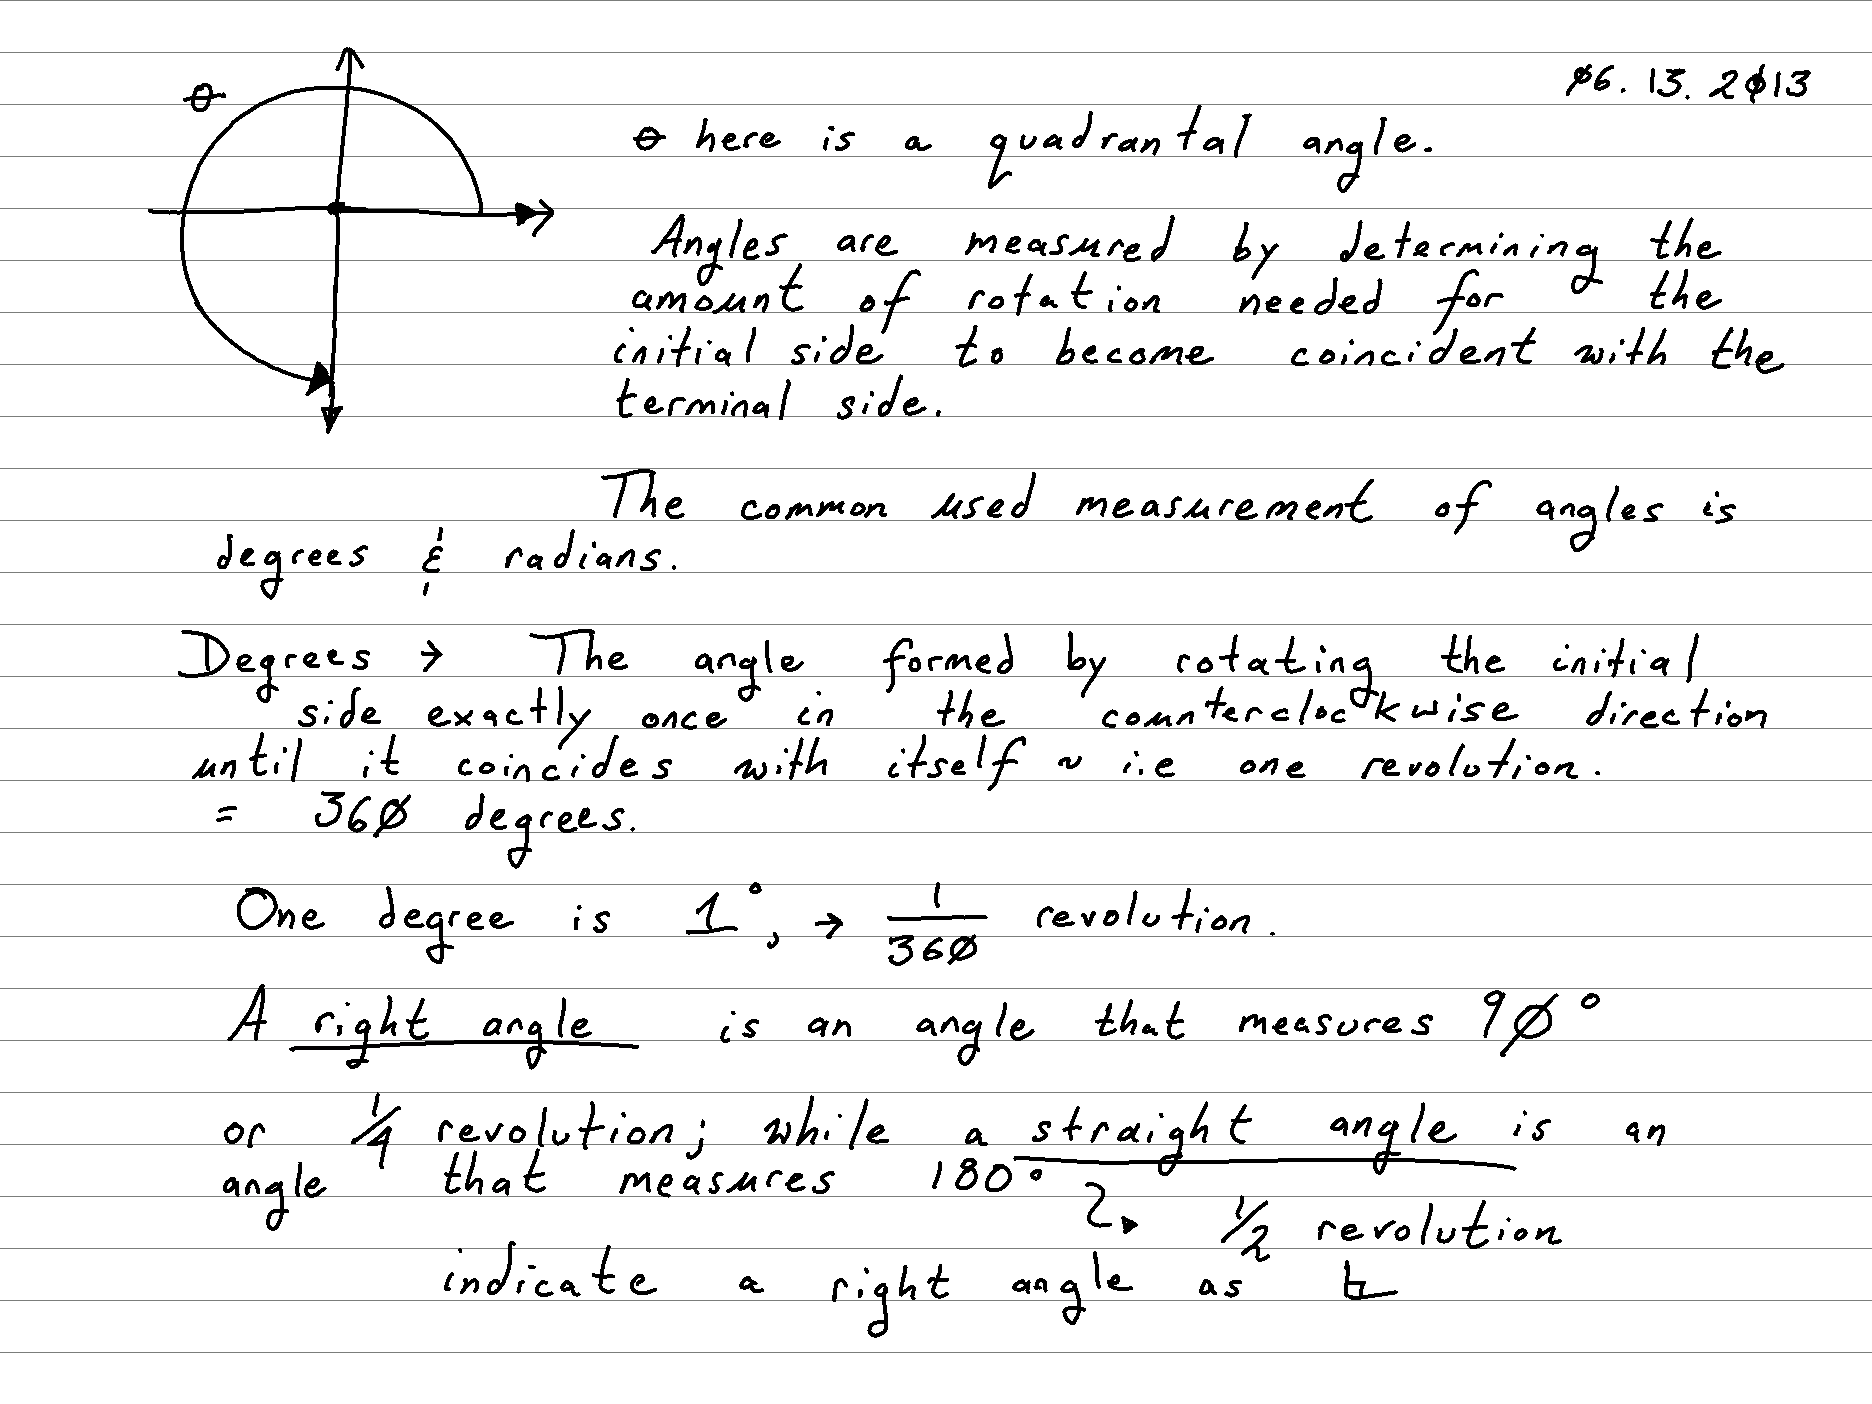 θ
06.13.2013
θ here is a quadrantal angle.
Angles are measured by determining the
amount of rotation needed for the
initial side to become coincident with the
terminal side.
The common used measurement of angles is
degrees & radians.
Degrees → The angle formed by rotating the initial
side exactly once in the counterclockwise direction
until it coincides with itself ~ i.e one revolution.
= 360 degrees.
One degree is 1°, → 1/360 revolution.
A right angle is an angle that measures 90°
or 1/4 revolution; while a straight angle is an
angle that measures 180°
1/2 revolution
indicate a right angle as